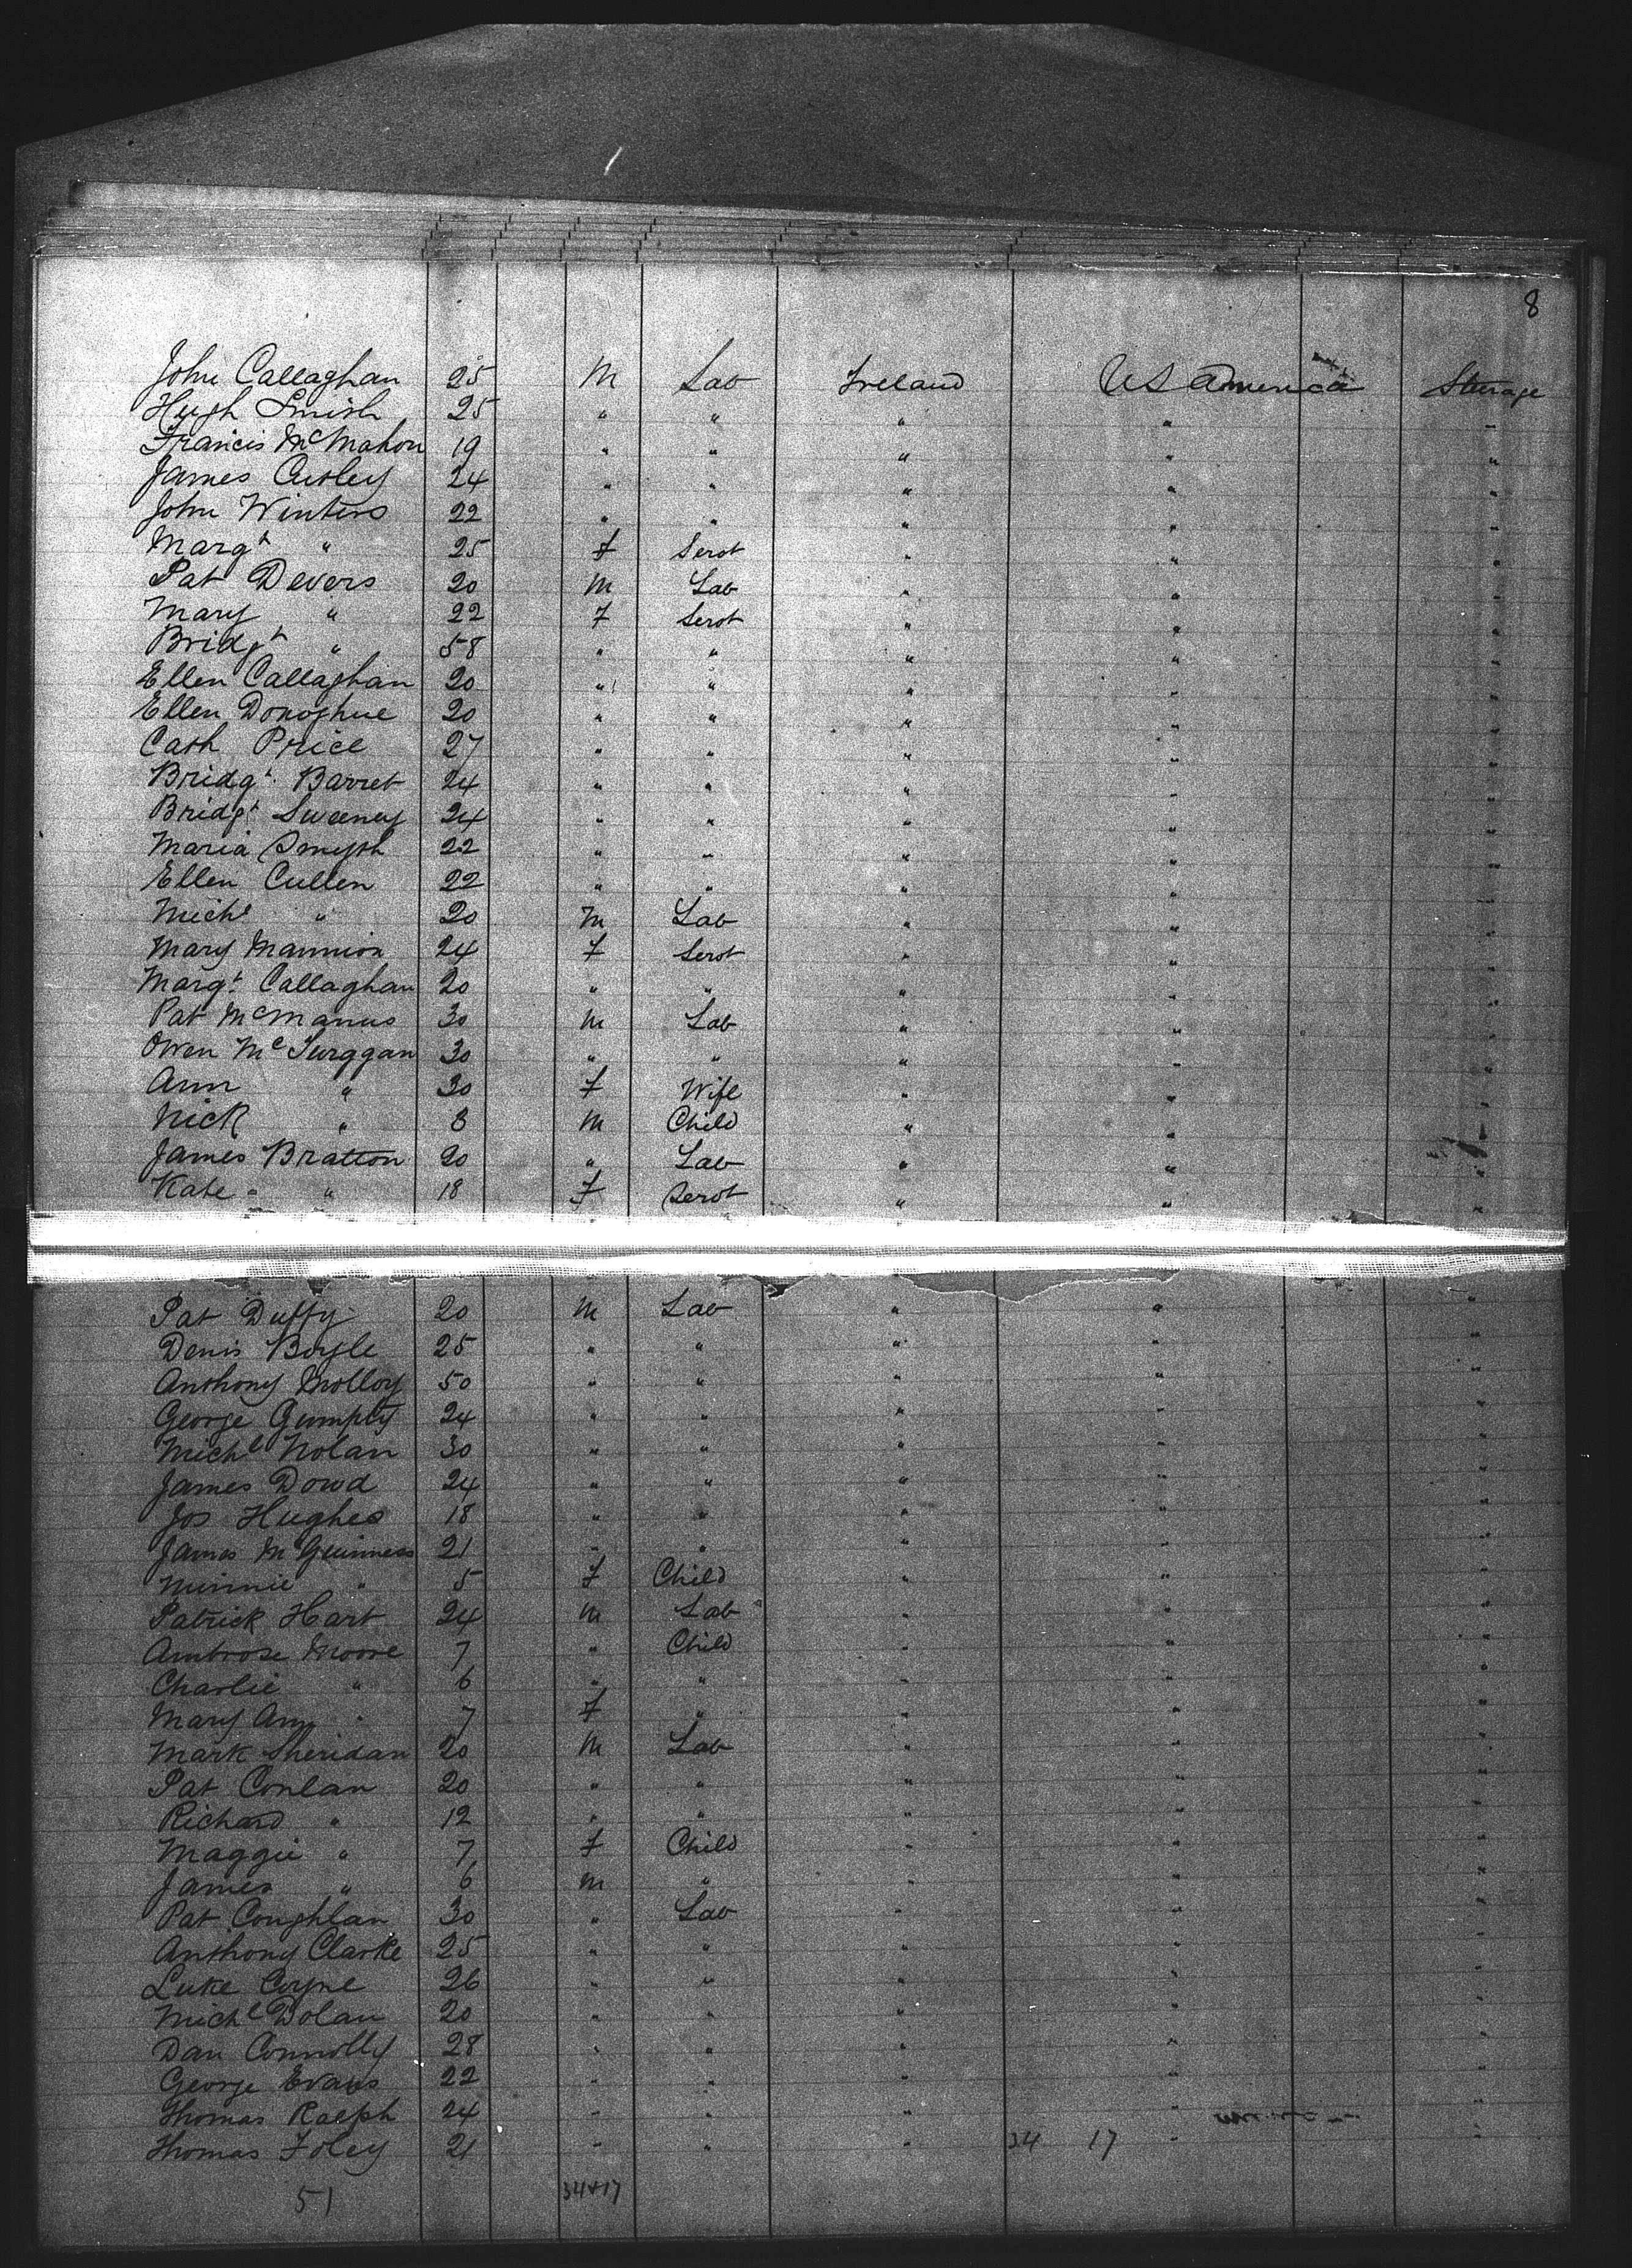 8
John Callaghan 25 M Lab Ireland US America Steerage
Hugh Smith 25 " " " " "
Francis McMahon 19 " " " " "
James Curley 24 " " " " "
John Winters 22 " " " " "
Margt " 25 F Servt " " "
Pat Devers 20 M Lab " " "
Mary " 22 F Servt " " "
Bridgt " 58 " " " " "
Ellen Callaghan 20 " " " " "
Ellen Donoghue 20 " " " " "
Cath Price 27 " " " " "
Bridgt Barret 24 " " " " "
Bridgt Sweeney 24 " " " " "
Maria Smyth 22 " " " " "
Ellen Cullen 22 " " " " "
Michl " 20 M Lab " " "
Mary Mannion 24 F Servt " " "
Margt Callaghan 20 " " " " "
Pat McManus 30 M Lab " " "
Owen Mc 30 " " " " "
Ann " 30 F Wife " " "
Nick " 8 M Child " " "
James Bratton 20 " Lab " " "
Kate " 18 F Servt " " "
Pat Duffy 20 M Lab " " "
Denis Boyle 25 " " " " "
Anthony Molloy 50 " " " " "
George 24 " " " " "
Michl Nolan 30 " " " " "
James Dowd 24 " " " " "
Jos Hughes 18 " " " " "
James McGuinness 21 " " " " "
Minnie " 5 F Child " " "
Patrick Hart 24 M Lab " " "
Ambrose Moore 7 " Child " " "
Charlie " 6 " " " " "
Mary Ann " 7 F " " " "
Mark Sheridan 20 M Lab " " "
Pat Conlan 20 " " " " "
Richard " 12 " " " " "
Maggie " 7 F Child " " "
James " 6 M " " " "
Pat Coughlan 30 " Lab " " "
Anthony Clarke 25 " " " " "
Luke Coyne 26 " " " " "
Michl Dolan 20 " " " " "
Dan Connolly 28 " " " " "
George Evans 22 " " " " "
Thomas Ralph 24 " " " " "
Thomas Foley 21 " " " 34 17 " "
51 34+17